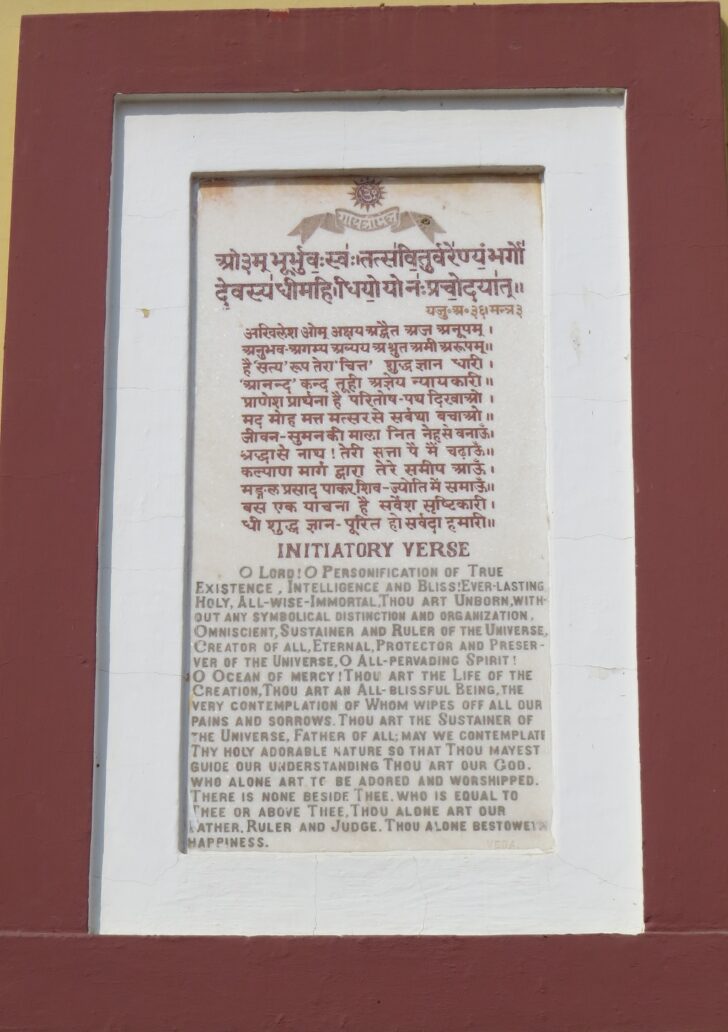 ओ३म्
गायत्री मन्त्र
ओ३म् भूर्भुवः॒स्वः॑। तत्स॑वि॒तुर्वरे॑ण्यं॒ भर्गो॑
दे॒वस्य॑ धीमहि। धियो॒ यो नः॑ प्रचो॒दया॑त्॥
यजु॰अ॰३६।मन्त्र३
अखिलेश ओम् अक्षय अद्वैत अज अनूपम्।
अनुभव-अगम्य अव्यय अश्रुत अमी अरूपम्॥
है 'सत्य' रूप तेरा 'चित्त' शुद्ध ज्ञान धारी।
'आनन्द' कन्द तूही अज्ञेय न्यायकारी॥
प्राणेश प्रार्थना है परितोष-पथ दिखाओ।
मद मोह मत्त मत्सर से सर्वथा बचाओ॥
जीवन-सुमन की माला नित नेह से बनाऊँ।
श्रद्धा से नाथ! तेरी सत्ता पै मैं चढ़ाऊँ॥
कल्याण मार्ग द्वारा तेरे समीप आऊँ।
मङ्गल प्रसाद पाकर शिव-ज्योति में समाऊँ॥
बस एक याचना है सर्वेश सृष्टिकारी।
धी शुद्ध ज्ञान-पूरित हो सर्वदा हमारी॥
INITIATORY VERSE
O LORD! O PERSONIFICATION OF TRUE
EXISTENCE, INTELLIGENCE AND BLISS! EVER-LASTING
HOLY, ALL-WISE-IMMORTAL, THOU ART UNBORN, WITH-
OUT ANY SYMBOLICAL DISTINCTION AND ORGANIZATION,
OMNISCIENT, SUSTAINER AND RULER OF THE UNIVERSE,
CREATOR OF ALL, ETERNAL, PROTECTOR AND PRESER-
VER OF THE UNIVERSE, O ALL-PERVADING SPIRIT!
O OCEAN OF MERCY! THOU ART THE LIFE OF THE
CREATION, THOU ART AN ALL-BLISSFUL BEING, THE
VERY CONTEMPLATION OF WHOM WIPES OFF ALL OUR
PAINS AND SORROWS. THOU ART THE SUSTAINER OF
THE UNIVERSE, FATHER OF ALL; MAY WE CONTEMPLATE
THY HOLY ADORABLE NATURE SO THAT THOU MAYEST
GUIDE OUR UNDERSTANDING THOU ART OUR GOD.
WHO ALONE ART TO BE ADORED AND WORSHIPPED.
THERE IS NONE BESIDE THEE. WHO IS EQUAL TO
THEE OR ABOVE THEE, THOU ALONE ART OUR
FATHER, RULER AND JUDGE. THOU ALONE BESTOWETH
HAPPINESS. VEDA.